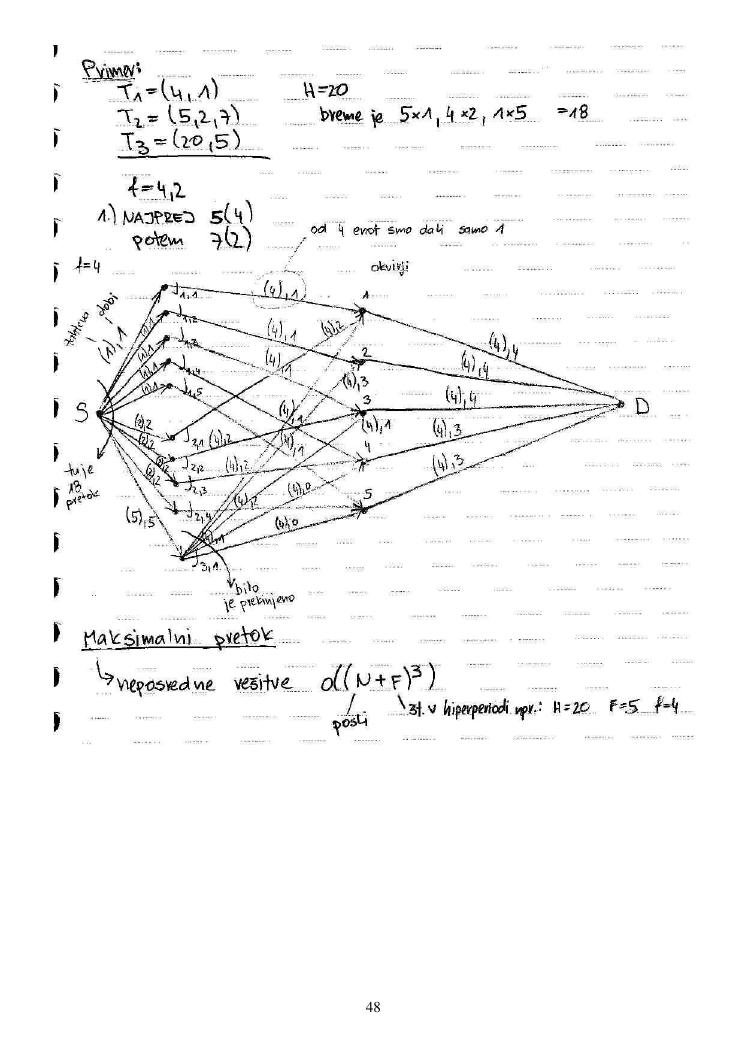 Primer:
T1=(4,1) H=20
T2=(5,2,7) breme je 5×1, 4×2, 1×5 =18
T3=(20,5)
f=4,2
1.) NAJPREJ 5(4)
potem 7(2)
od 4 enot smo dali samo 1
f=4
okvirji
dobi
(1),1
(1)1
(1)1
(1)1
(1)1
J1,1
J1,2
J1,3
J1,4
J1,5
(4),1
(4),1
(4),1
(4),2
(4),3
1
2
3
4
5
(4),4
(4),4
(4),4
(4),3
(4),3
S
D
(2)2
(2)2
(2)2
(2)2
J2,1
J2,2
J2,3
J2,4
(4),2
(4),2
(4),1
(4),1
(4),1
(4),2
(4),0
(4),0
(4),1
(5),5
J3,1
tu je
18
pretok
bilo
je prekinjeno
Maksimalni pretok
neposredne rešitve O((N+F)³)
posli
št. v hiperperiodi npr.: H=20 F=5 f=4
48